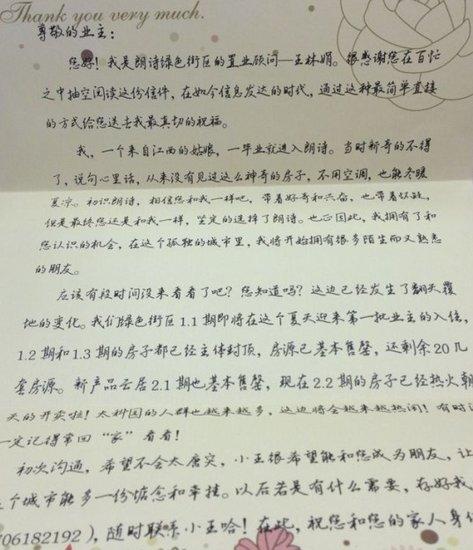 Thank you very much.
尊敬的业主：
您好！我是朗诗绿色街区的置业顾问—王林娟。很感谢您在百忙
之中抽空阅读这份信件，在如今信息发达的时代，通过这种最简单直接
的方式给您送去我最真切的祝福。
我，一个来自江西的姑娘，一毕业就进入朗诗。当时新奇的不得
了，说句心里话，从来没有见过这么神奇的房子，不用空调，也能冬暖
夏凉。初识朗诗，相信您和我一样吧，带着好奇和兴奋，也带着怀疑，
但是最终您还是和我一样，坚定的选择了朗诗。也正因此，我拥有了和
您认识的机会，在这个孤独的城市里，我将开始拥有很多陌生而又熟悉
的朋友。
应该有段时间没来看看了吧？您知道吗？这边已经发生了翻天覆
地的变化。我们绿色街区1.1期即将在这个夏天迎来第一批业主的入住，
1.2期和1.3期的房子都已经主体封顶，房源已基本售罄，还剩余20几
套房源。新产品云居2.1期也基本售罄，现在2.2期的房子已经热火朝
天的开卖啦！太科园的人群也越来越多，这边将会越来越热闹！有时间
一定记得常回“家”看看！
初次沟通，希望不会太唐突，小王很希望能和您成为朋友，让
这个城市能多一份惦念和牵挂。以后若是有什么需要，存好我
06182192），随时联系小王哈！在此，祝您和您的家人身体